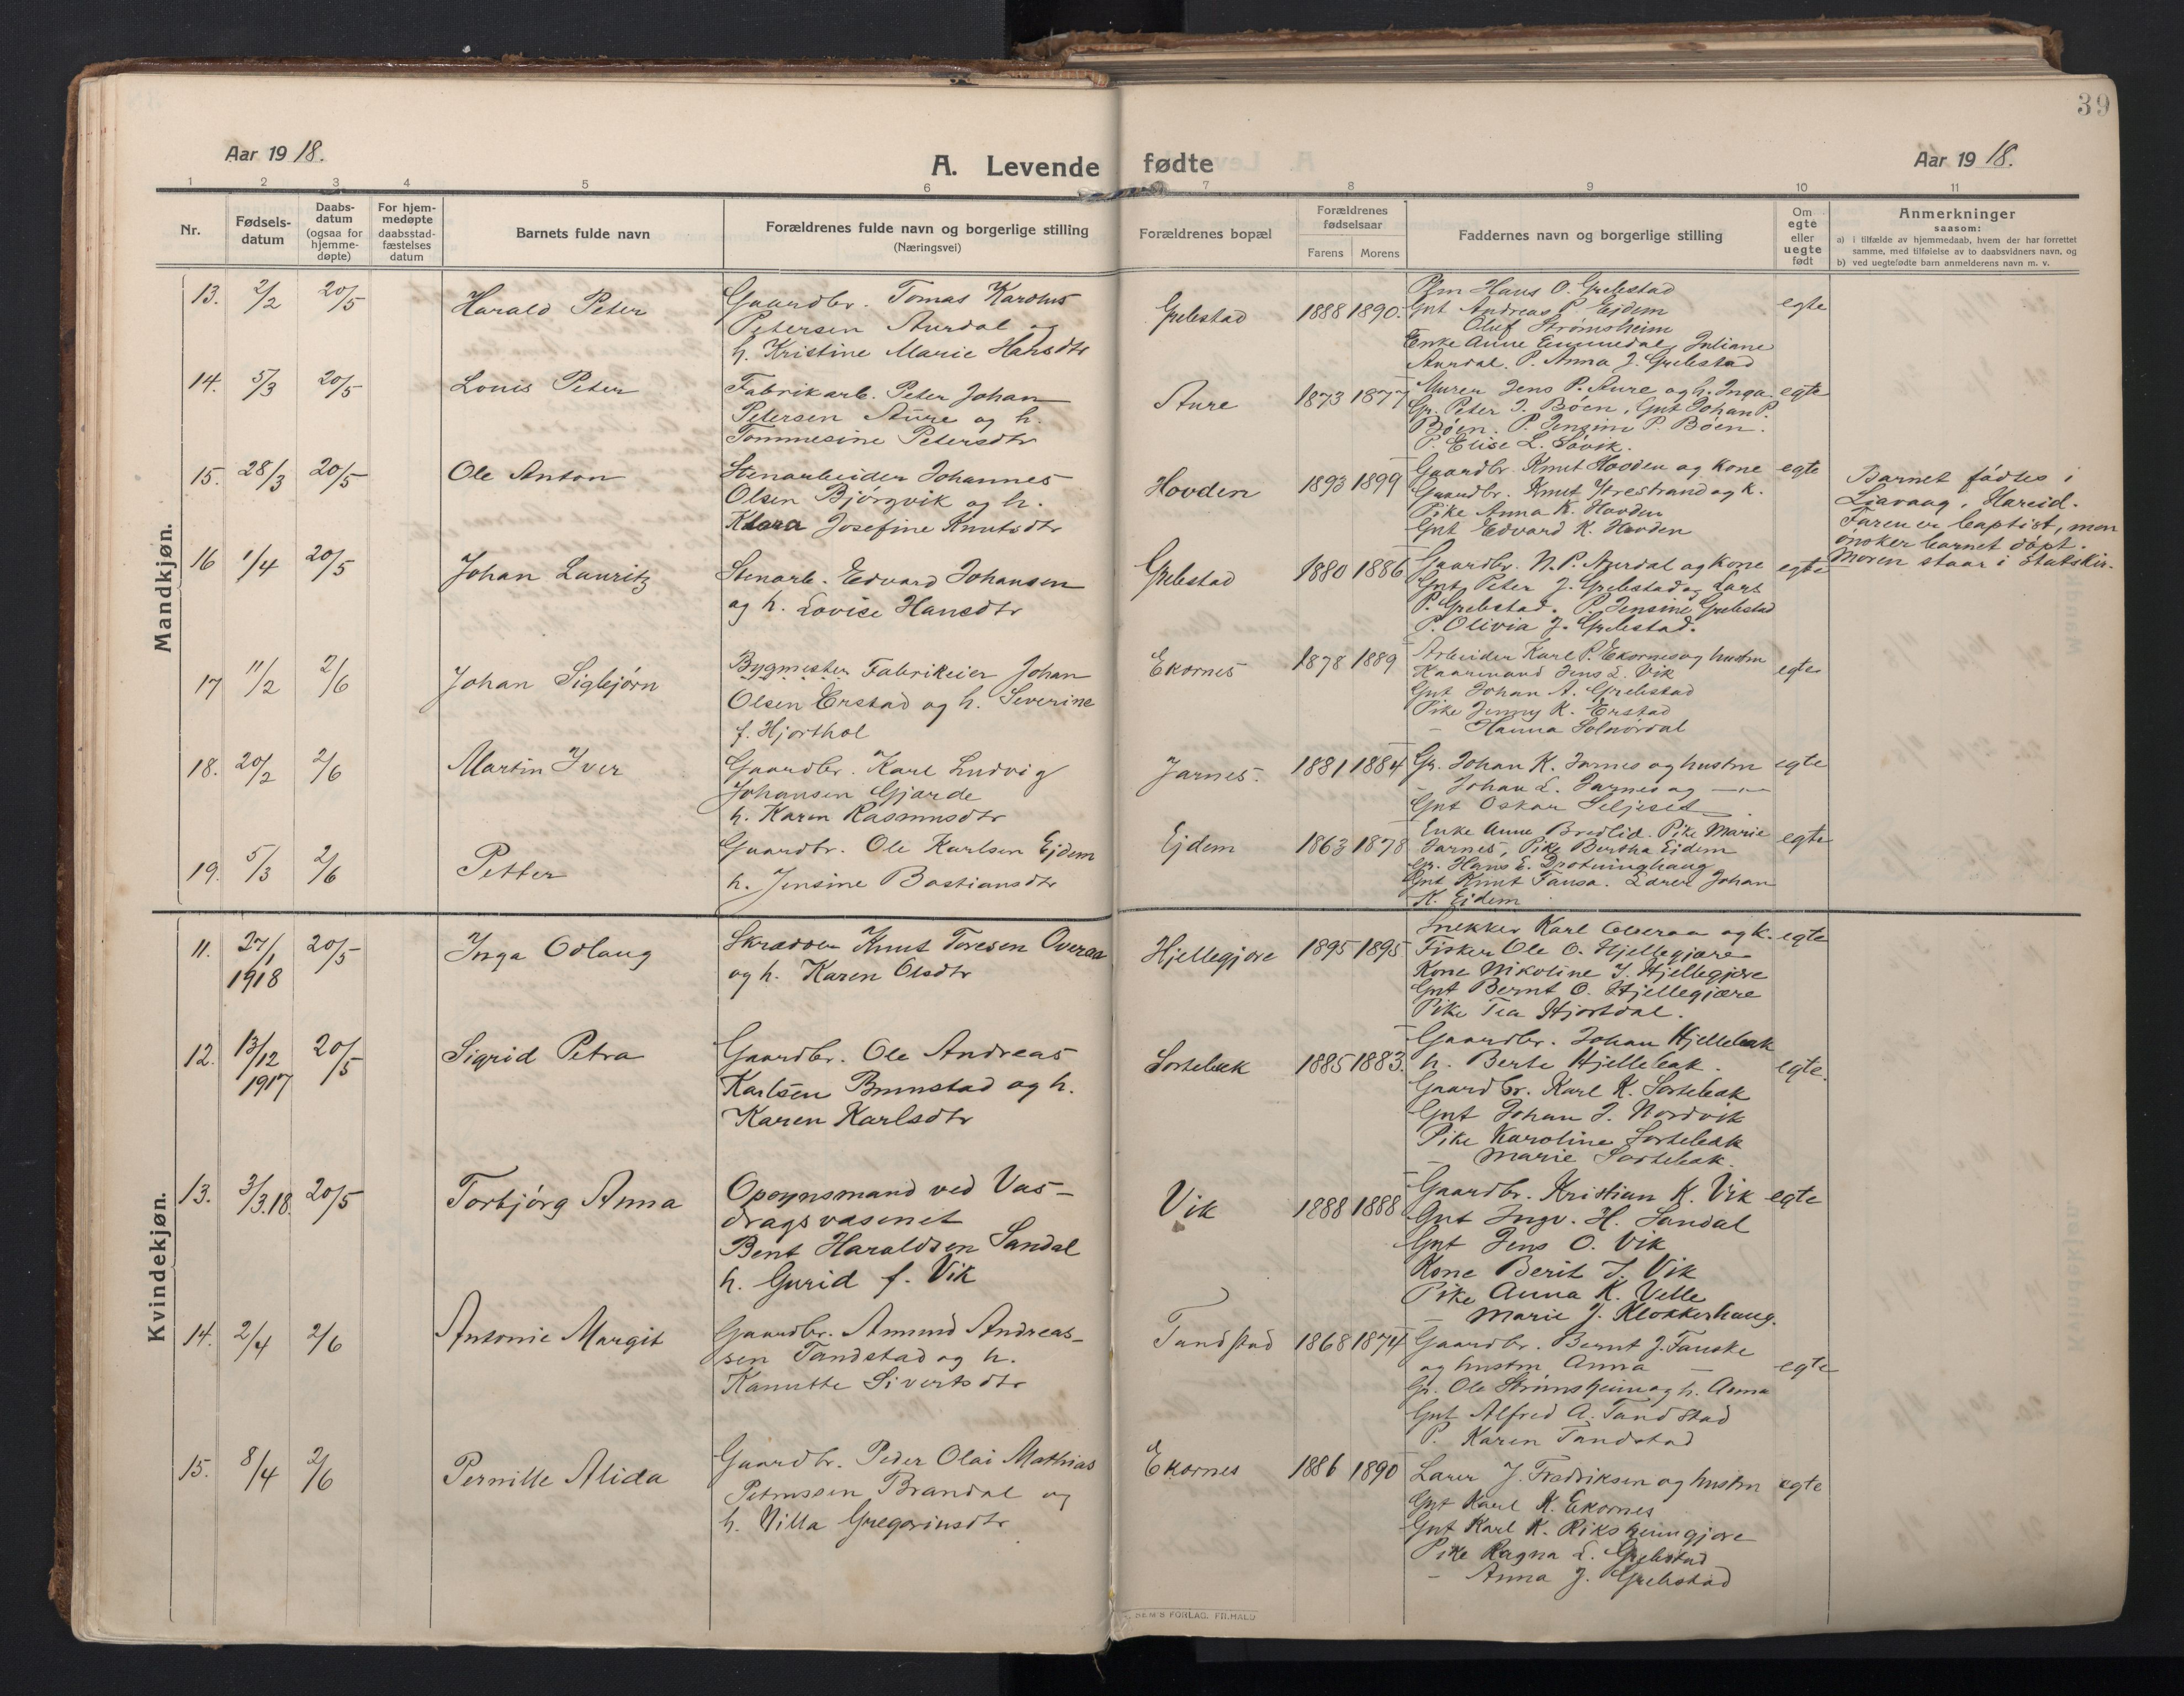 39
Aar 19 18.
A. Levende fødte
Aar 19 18.
1 2 3 4 5 6 7 8 9 10 11
Nr.
Fødsels-
datum
Daabs-
datum
(ogsaa for
hjemme-
døpte)
For hjem-
medøpte
daabsstad-
fæstelses
datum
Barnets fulde navn
Forældrenes fulde navn og borgerlige stilling
(Næringsvei)
Forældrenes bopæl
Forældrenes
fødselsaar
Farens Morens
Faddernes navn og borgerlige stilling
Om
egte
eller
uegte
født
Anmerkninger
saasom:
a) i tilfælde av hjemmedaab, hvem der har forrettet
samme, med tilføielse av to daabsvidners navn, og
b) ved uegtefødte barn anmelderens navn m. v.
Mandkjøn.
13. 2/2 20/5 Harald Peter
Gaardbr. Tomas Karolus
Petersen Aurdal og
h. Kristine Marie Hansdtr
Grebstad 1888 1890.
Hans O. Grebstad
Gut Andreas P. Ejdem
Oluf Strømsheim
Enke Anne Emmedal, Juliane
Aurdal. P. Anna J. Grebstad
egte
14. 5/3 20/5 Louis Peter
Fabrikarb. Peter Johan
Petersen Aure og h.
Tommesine Petersdtr
Aure 1873 1877
Murer Jens P. Aure og h. Inga
Gr. Peter J. Bøen, Gut Johan P.
Bøen. P. Jensine P. Bøen.
P. Elise L. Søvik.
egte
15. 28/3 20/5 Ole Anton
Stenarbeider Johannes
Olsen Bjørgvik og h.
Klara Josefine Knutsdtr
Hovden 1893 1899
Gaardbr. Knut Hovden og kone
Gaardbr. Knut Ytrestrand og k.
Pike Anna K. Hovden
Gut Edvard K. Hovden
egte
Barnet fødtes i
Liavaag, Hareid.
Faren er baptist, men
ønsker barnet døpt.
Moren staar i Statskir.
16 1/4 20/5 Johan Lauritz
Stenarb. Edvard Johansen
og h. Lovise Hansdtr
Grebstad 1880 1886
Gaardbr. N. P. Aurdal og kone
Gut Peter J. Grebstad og Lars
P. Grebstad. P. Jensine Grebstad
P. Olivia J. Grebstad.
egte
17 11/2 2/6 Johan Sigbjørn
Bygmester Fabrikeier Johan
Olsen Erstad og h. Severine
f. Hjorthol
Ekornes 1878 1889
Arbeider Karl P. Ekornes og hustru
Kaarmand Jens L. Vik
Gut Johan A. Grebstad
Pike Jenny K. Erstad
– Hanna Solnørdal
egte
18. 20/2 2/6 Martin Iver
Gaardbr. Karl Ludvig
Johansen Gjærde
h. Karen Rasmusdtr
Jarnes. 1881 1884
Gr. Johan K. Jarnes og hustru
– Johan L. Jarnes og —"—
Gut Oskar Seljeset
egte
19. 5/3 2/6 Petter
Gaardbr. Ole Karlsen Ejdem
h. Jensine Bastiansdtr
Ejdem 1863 1878
Enke Anne Bredlid. Pike Marie
Jarnes, Pike Bertha Eidem
Gr. Hans E. Drotninghaug
Gut Knut Tausa. Lærer Johan
K. Eidem
egte
Kvindekjøn.
11. 27/1 1918 20/5 Inga Odlaug
Skrædder Knut Toresen Overaa
og h. Karen Olsdtr
Hjellegjøre 1895 1895
Snekker Karl Overaa og k.
Fisker Ole O. Hjellegjære
Kone Nikoline J. Hjellegjøre
Gut Bernt O. Hjellegjære
Pike Tea Hjortdal.
egte
12. 13/12 1917 20/5 Sigrid Petra
Gaardbr. Ole Andreas
Karlsen Brunstad og h.
Karen Karlsdtr
Sortebæk 1885 1883.
Gaardbr. Johan Hjellebak
h. Berte Hjellebak.
Gaardbr. Karl K. Sortebak
Gut Johan J. Nordvik
Pike Karoline Sortebak
– Marie Sortebak.
egte.
13. 3/3.18. 20/5 Torbjørg Anna
Opsynsmand ved Vas-
dragsvæsenet
Bent Haraldsen Sandal
h. Gurid f. Vik
Vik 1888 1888
Gaardbr. Kristian K. Vik
Gut Ingv. H. Sandal
Gut Jens O. Vik
Kone Berit J. Vik
Pike Anna K. Velle
– Marie J. Klokkerhaug.
egte
14. 2/4 2/6 Antonie Margit
Gaardbr. Amund Andreas-
sen Tandstad og h.
Kanutte Sivertsdtr
Tandstad 1868 1874
Gaardbr. Bernt J. Fauske
og hustru Anna –
Gr. Ole Strømsheim og h. Anna
Gut Alfred A. Tandstad
P. Karen Tandstad
egte
15. 8/4 2/6 Pernille Alida
Gaardbr. Peder Olai Mathias
Petrussen Brandal og
h. Villa Gregoriusdtr
Ekornes 1886 1890
Lærer J. Fredriksen og hustru
Gut Karl K. Ekornes
Gut Karl K. Riksheimgjøre
Pike Ragna L. Grebstad
– Anna J. Grebstad
egte
SEM'S FORLAG. FR.HALD